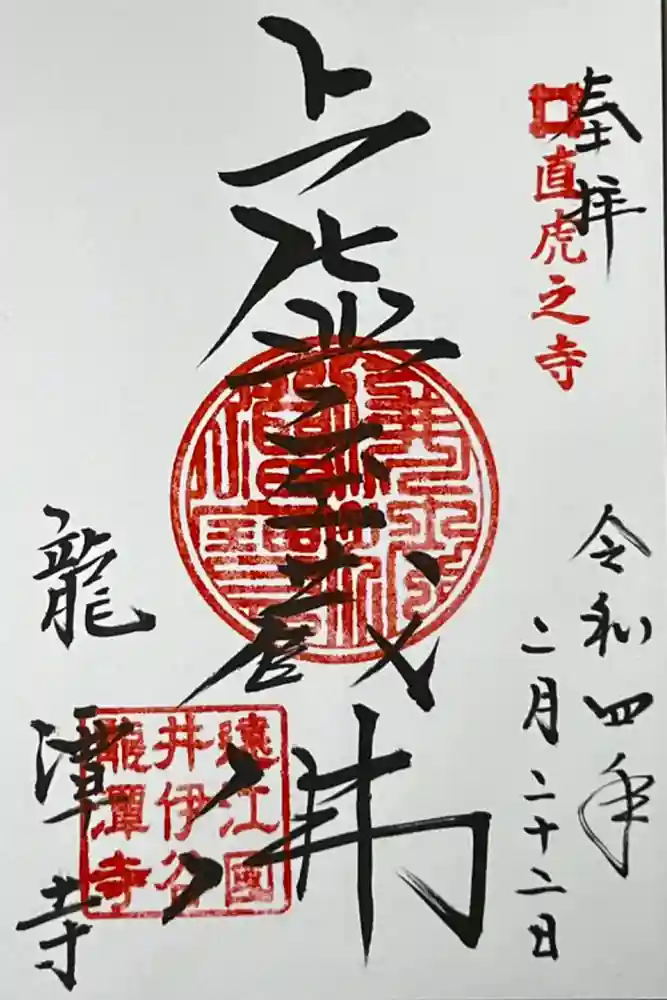 奉拝
直虎之寺
令和四年
二月二十二日
上虚空蔵佛
遠江國
井伊谷
龍潭寺
龍潭寺